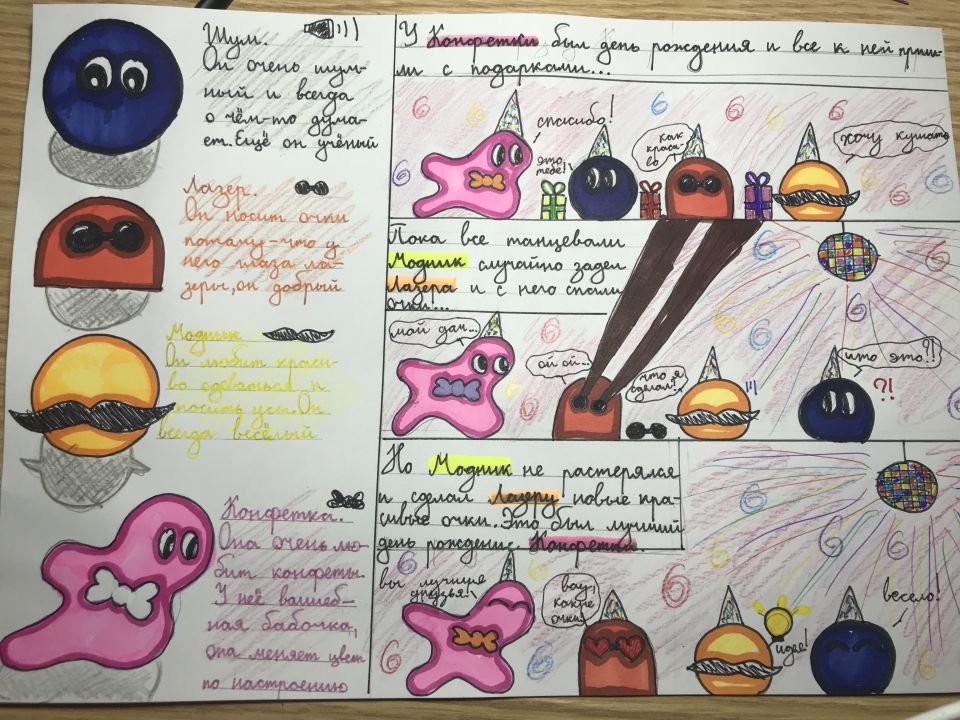 Шум.
Он очень шум-
ный и всегда
о чём-то дума-
ет. Ещё он учёный
Лазер.
Он носит очки
потаму-что у
него глаза ла-
зеры, он добрый
Модник.
Он любит краси-
во одеваться и
носить усы. Он
всегда весёлый
Конфетка.
Она очень лю-
бит конфеты.
У неё вашеб-
ная бабочка,
она меняет цвет
по настроению
У Конфетки был день рождения и все к ней пришли
ли с подарками...
спасибо!
это
тебе!
как
краси-
во
хочу кушать
6 6 6 6 6 6 6
Пока все танцевали
Модник случайно задел
Лазера и с него спали
очки...
мой дом...
ой ой...
что я
сделал?
что это?!
?!
Но Модник не растерялся
и сделал Лазеру новые кра-
сивые очки. Это был лучший
день рождение Конфетки.
вы лучшие
друзья!
вау,
какие
очки
идея!
весело!